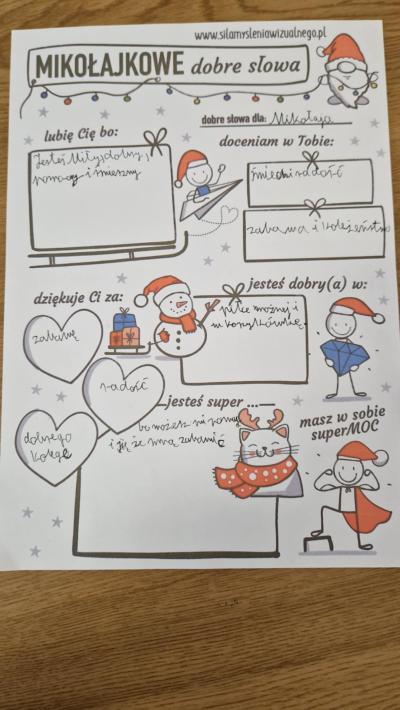 www.silamysleniawizualnego.pl
MIKOŁAJKOWE dobre słowa
dobre słowa dla: Mikołaja
lubię Cię bo:
Jesteś Miły, dobry,
pomocny i śmieszny
doceniam w Tobie:
śmiech i radość
zabawa i koleżeństwo
dziękuje Ci za:
zabawę
radość
dobrego
kolegę
jesteś dobry(a) w:
piłce nożnej i
w koszykówkę.
jesteś super ...
bo możesz mi pomóc
i się ze mną zabawić
masz w sobie
superMOC